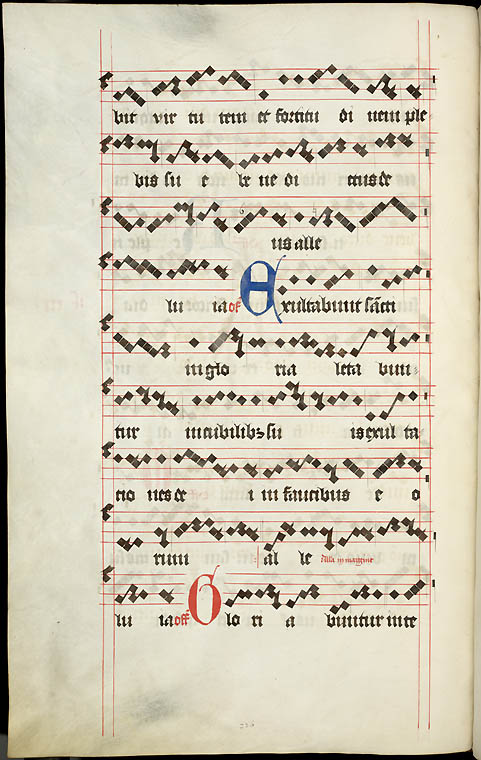 bit vir tu tem et fortitu di nem ple
bis su e be ne di ctus de
us alle
lu ia off Exultabunt sancti
in glo ria leta bun-
tur in cubilibz su is exul ta
tio nes de i in faucibus e o
rum al le
lu ia off Glo ri a buntur in te